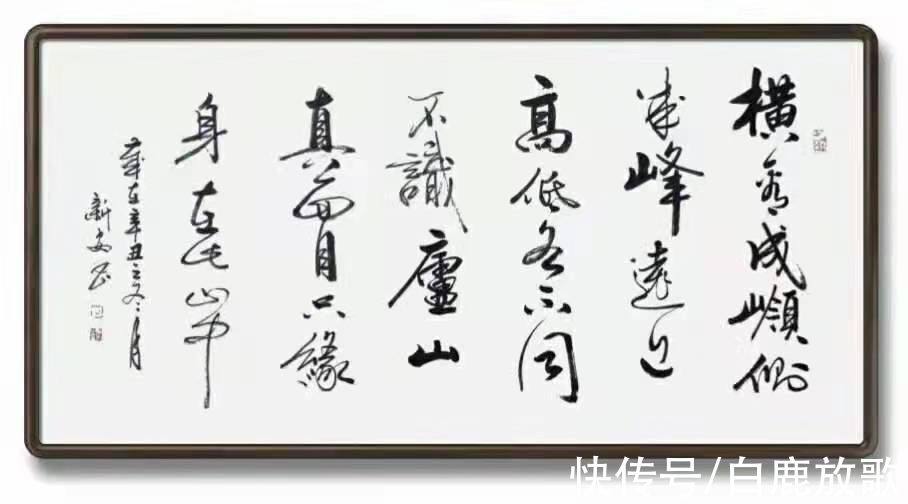 横看成嶺側
成峰遠近
高低各不同
不識廬山
真面目只緣
身在此山中
歲在辛丑之冬月
新安
快传号/白鹿放歌